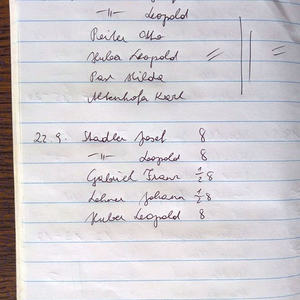 -"- Leopold
Reiter Otto
Huber Leopold =
Par Hilda
Altenhofer Karl
22.9. Stadler Josef 8
-"- Leopold 8
Gabriel Franz ½ 8
Lehner Johann ½ 8
Huber Leopold 8